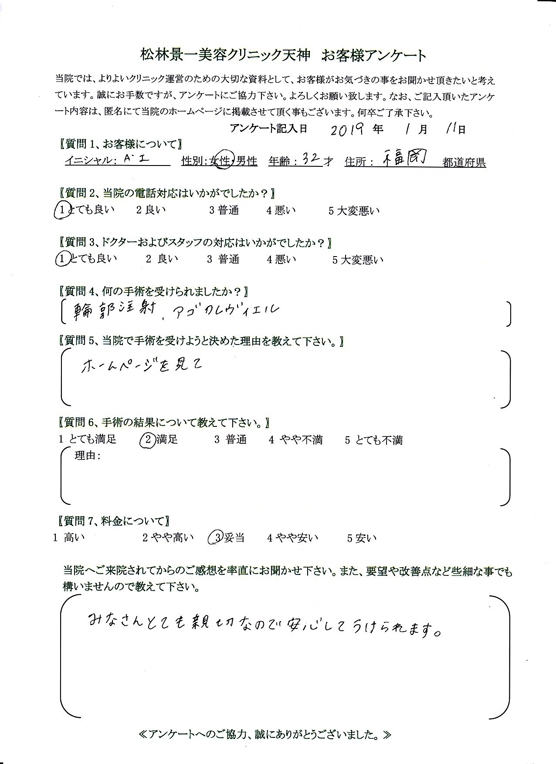 松林景一美容クリニック天神　お客様アンケート
当院では、よりよいクリニック運営のための大切な資料として、お客様がお気づきの事をお聞かせ頂きたいと考え
ています。誠にお手数ですが、アンケートにご協力下さい。よろしくお願い致します。なお、ご記入頂いたアンケ
ート内容は、匿名にて当院のホームページに掲載させて頂く事もございます。何卒ご了承下さい。
アンケート記入日　2019 年　1 月　11日
〖質問1、お客様について〗
イニシャル： A・I　性別：女性・男性　年齢：32才　住所：福岡　都道府県
〖質問2、当院の電話対応はいかがでしたか？〗
1とても良い　2良い　3普通　4悪い　5大変悪い
〖質問3、ドクターおよびスタッフの対応はいかがでしたか？〗
1とても良い　2良い　3普通　4悪い　5大変悪い
〖質問4、何の手術を受けられましたか？〗
輪郭注射、アゴクレヴィエル
〖質問5、当院で手術を受けようと決めた理由を教えて下さい。〗
ホームページを見て
〖質問6、手術の結果について教えて下さい。〗
1とても満足　2満足　3普通　4やや不満　5とても不満
理由：
〖質問7、料金について〗
1高い　2やや高い　3妥当　4やや安い　5安い
当院へご来院されてからのご感想を率直にお聞かせ下さい。また、要望や改善点など些細な事でも
構いませんので教えて下さい。
みなさんとても親切なので安心してうけられます。
≪アンケートへのご協力、誠にありがとうございました。≫